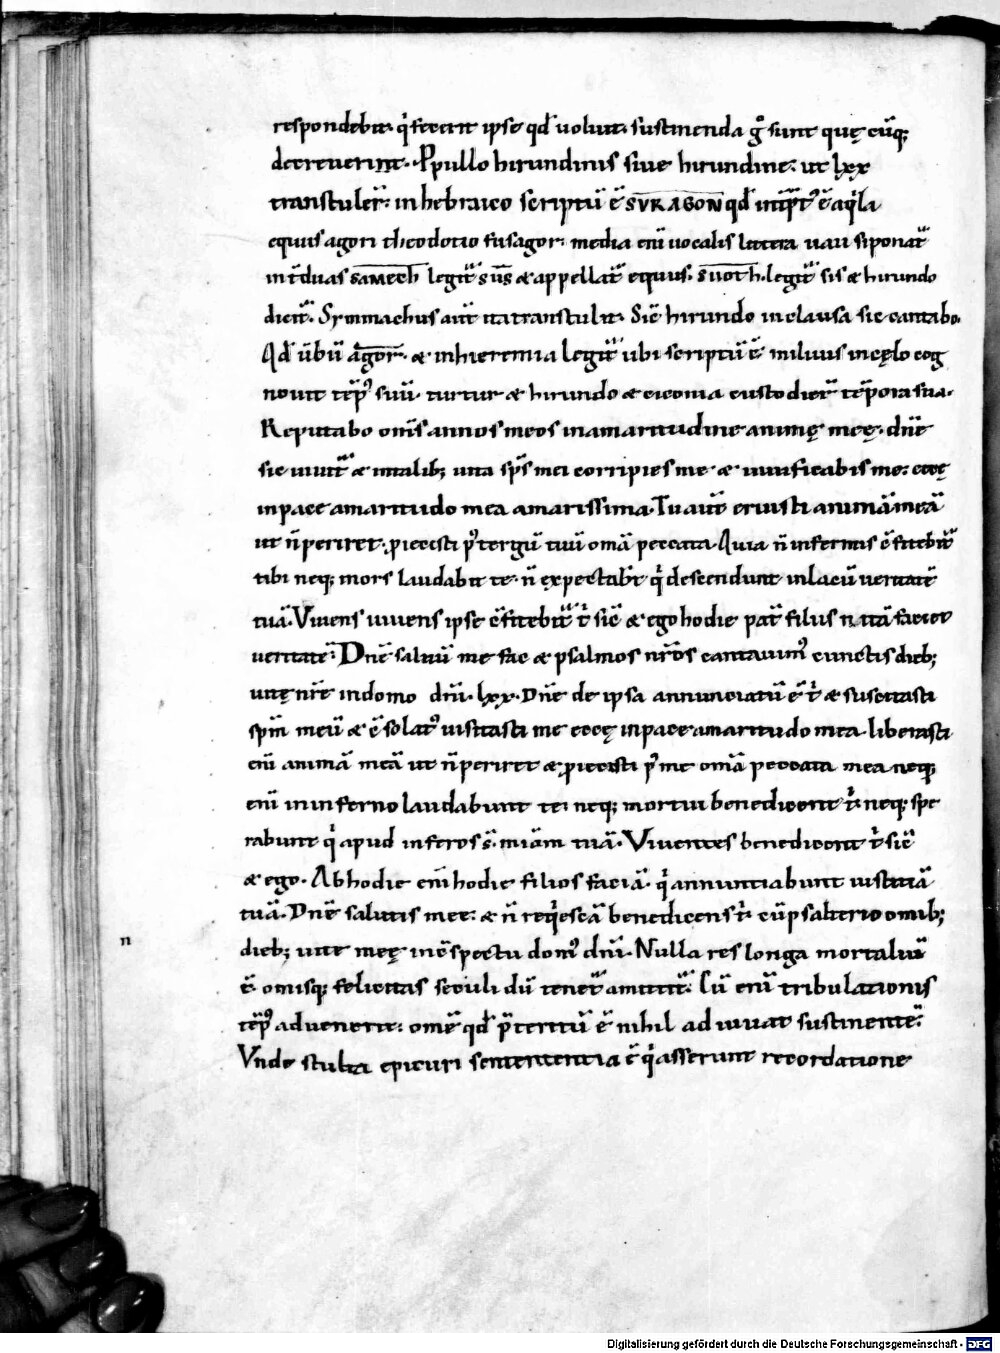 respondebit. qͥ fecerit ipse qđ uoluit. sustinenda gͦ sunt quę cūq;
decreuerint. Ppullo hirundinis siue hirundine. ut lxx
transtuler̄. in hebraico scriptū ē SVRAGON qđ int̄p̄tꝰ ē aqͥla
equus agori theodotio susagor. media eni uocalis littera uau si ponat᷑
int̄ duas SAMECH legit᷑ sūs & appellat᷑ equus. suoth. legit᷑ sis & hirundo
dicit᷑. Symmachus aūt ita transtulit. Sic̄ hirundo inclausa sic cantabo.
Qđ ūbū agor. & inhieremia legit᷑ ubi scriptū ē miluus incęlo cog
nouit tēpꝰ suū. turtur & hirundo & ciconia custodier̄ tēpora sua.
Reputabo om̄s annos meos inamaritudine animę meę. dn̄e
sic uiuit᷑ & intalib; uita sp̄s mei corripies me & uiuificabis me. eccę
inpace amaritudo mea amarissima. Tu aūt eruisti animā meā
ut n̄ periret. proiecisti pꝰtergū tuū omā peccata. Quia n̄ infernus c̄fitebit᷑
tibi neq; mors laudabit te. n̄ expectabt̄ qͥ descendunt inlacū ueritatē
tuā. Viuens uiuens ipse c̄fitebit᷑ tͥ sic̄ & ego hodie pat̄ filiis n̄ tā faciet
ueritatē. Dn̄e saluū me fac & psalmos nr̄os cantauimꝰ cunctis dieb;
uitę nr̄e indomo dn̄i. lxx. Dn̄e de ipsa annunciatū ē tͥ & suscitasti
spm̄ meū & c̄solatꝰ uisitasti me eccę inpace amaritudo mea. liberasti
eni animā meā ut n̄ periret & proiecisti pꝰ me omā peccata mea neq;
eni ininferno laudabunt te. neq; mortui benedicent tͥ. neq; spe
rabunt qͥ apud inferos s̄. miām tuā. Viuentes benedicent tͥ sic̄
& ego. Abhodie eni hodie filios faciā. qͥ annuntiabunt iustitiā
tuā. Dn̄e salutis mee. & n̄ reqͥescā benedicens tͥ. cū psalterio omib;
dieb; uite meę inc̄spectu domꝰ dn̄i. Nulla res longa mortaliū
n
ē. omisq; felicitas seculi dū tenet᷑ amittit᷑. Cū eni tribulationis
tēpꝰ aduenerit. omē qđ p̄teritū ē nihil adiuuat sustinentē.
Vnde stulta epicuri sentententia ē qͥ asserunt recordatione
Digitalisierung gefördert durch die Deutsche Forschungsgemeinschaft - DFG